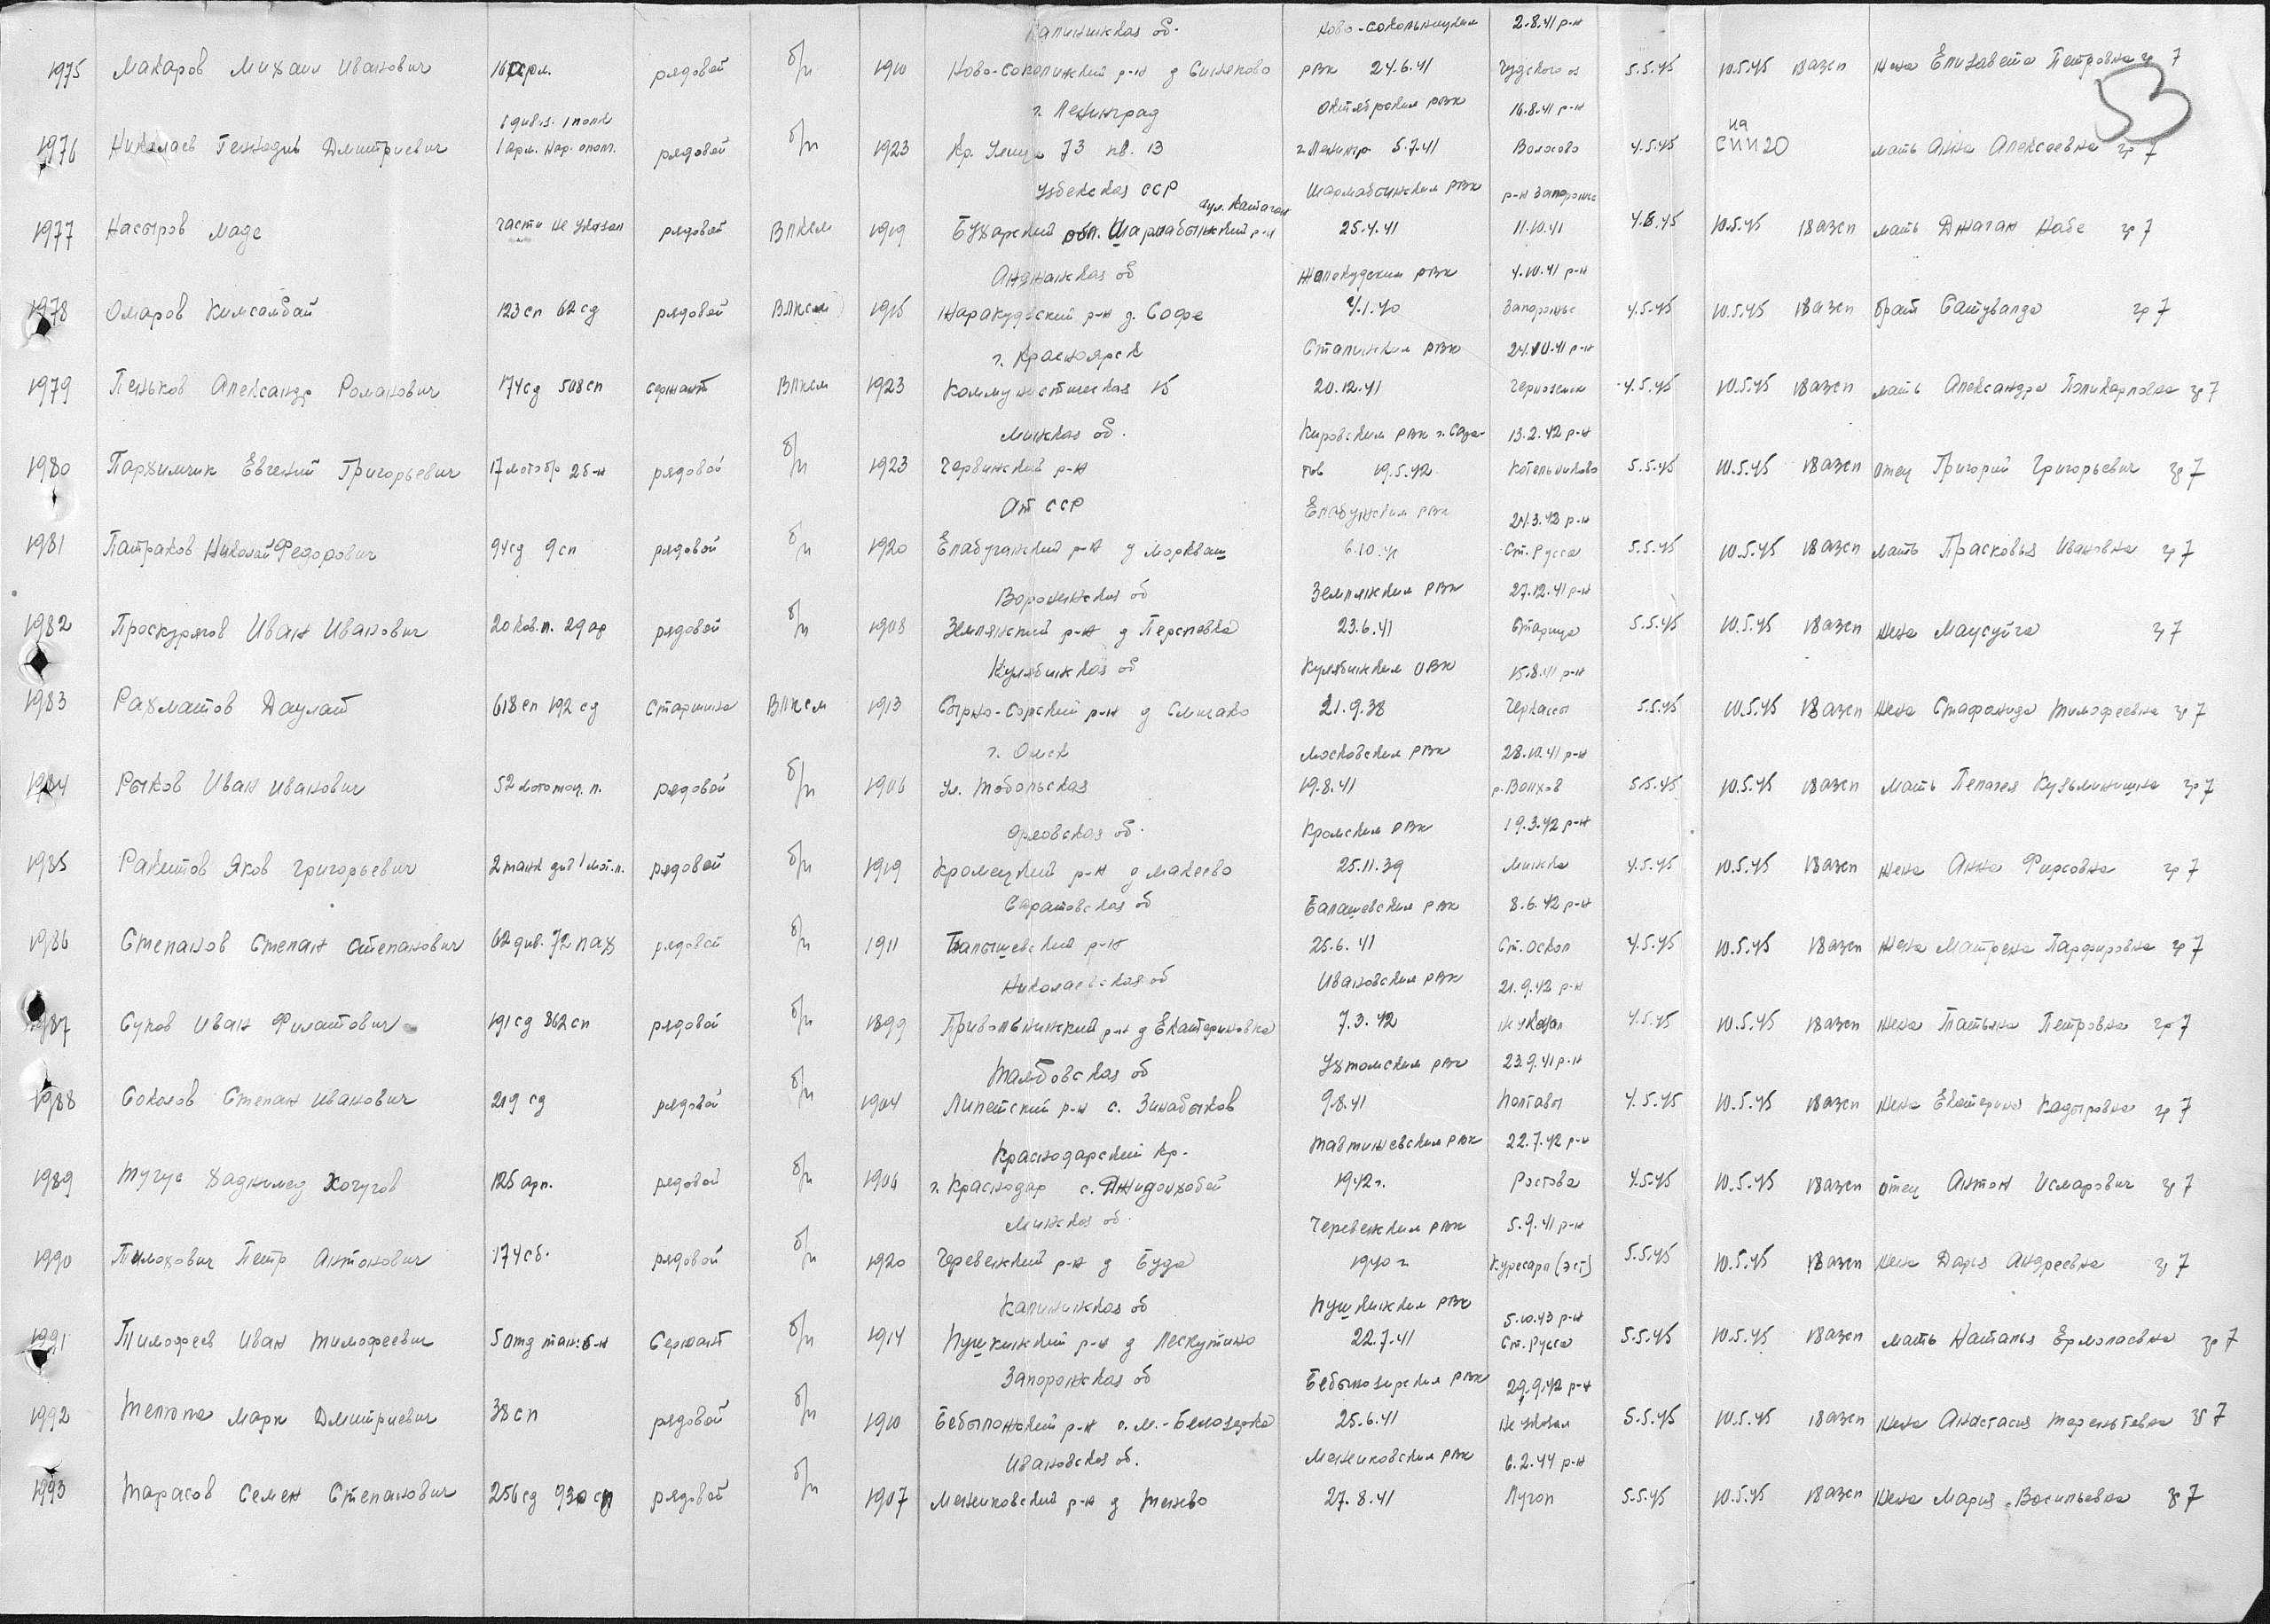 Калининская об. Ново-сокольницким 2.8.41 р-н
1975 Макаров Михаил Иванович рядовой б/п 1910 Ново-соколинский р-н д Синяково рвк 24.6.41 Чудского оз 5.5.45 10.5.45 18 азсп жена Елизавета Петровна гр 7
53
г. Ленинград Октябрским рвк 16.8.41 р-н
1 див.з. 1 полк на
1976 Николаев Генадив Дмитриевич 1 арм. нар. опол. рядовой б/п 1923 Кр. Улица 73 кв. 13 г. Ленингр 5.7.41 Волосово 4.5.45 СПП 20 мать Анна Алексеевна гр 7
Узбекская ССР аул. Катаган Шармабинским РВК р-н Запорожье
1977 Насыров Маде части не указал рядовой ВЛКСМ 1919 Бухарский обл. Шармабинский р-н 25.4.41 11.10.41 4.5.45 10.5.45 18 азсп мать Джаган Набе гр 7
Анджанская об Жалекудским рвк 4.10.41 р-н
1978 Омаров Кимсамбай 123 сп 62 сд рядовой ВЛКСМ 1915 Жаракудский р-н д. Софе 4.1.40 Запорожье 4.5.45 10.5.45 18 азсп брат Сатувалда гр 7
г. Красноярск Сталинским рвк 24.10.41 р-н
1979 Пеньков Александр Романович 174 сд 508 сп сержант ВЛКСМ 1923 Коммунистическая 15 20.12.41 4.5.45 10.5.45 18 азсп мать Александра Поликарповна гр 7
Минская об. Кировским рвк г. Сара- 13.2.42 р-н
1980 Пархимчик Евгений Григорьевич 17 мото бр 2 б-н рядовой б/п 1923 Червинский р-н тов 19.5.42 Котельниково 5.5.45 10.5.45 18 азсп отец Григорий Григорьевич гр 7
Ат ССР Елабужским рвк 24.3.43 р-н
1981 Патраков Николай Федорович 94 сд 9 сп рядовой б/п 1920 Елабуганский р-н д Моркваш Ст. Русса 5.5.45 10.5.45 18 азсп мать Прасковья Ивановна гр 7
Воронежская об Землянским рвк 27.12.41 р-н
1982 Проскуряков Иван Иванович 20 кав. п. рядовой б/п 1908 Землянский р-н д Перлевка 23.6.41 Старица 5.5.45 10.5.45 18 азсп жена гр 7
Кулябинская об Кулябинским ОВК 15.8.41 р-н
1983 Рахматов Даулат 618 сп 192 сд старшина ВЛКСМ 1913 р-н д 21.9.38 Черкассы 5.5.45 10.5.45 18 азсп жена Стафанида Тимофеевна гр 7
г. Омск Московским рвк 28.10.41 р-н
1984 Рыков Иван Иванович 52 мотоцц. п. рядовой б/п 1906 ул. Тобольская 19.8.41 р. Волхов 5.5.45 10.5.45 18 азсп мать Пелагея Кузьминишна гр 7
Орловская об. Кромским рвк 19.3.42 р-н
1985 Ракитов Яков Григорьевич 2 танк див 1 мот. п. рядовой б/п 1919 Кромецкий р-н д Макеево 25.11.39 Минска 4.5.45 10.5.45 18 азсп жена Анна Фирсовна гр 7
Саратовская об Балашевским рвк 8.6.42 р-н
1986 Степанов Степан Степанович 62 див. 72 пах рядовой б/п 1911 Балышевский р-н 25.6.41 Ст. Оскол 4.5.45 10.5.45 18 азсп жена Матрена Парфировна гр 7
Николаевская об Ивановским рвк 21.9.42 р-н
1987 Суков Иван Филатович 191 сд 862 сп рядовой б/п 1899 Привольнинский р-н д Екатериновка 7.3.42 не указал 4.5.45 10.5.45 18 азсп жена Татьяна Петровна гр 7
Тамбовская об Ухтомским рвк 23.9.41 р-н
1988 Соколов Степан Иванович 219 сд рядовой б/п 1904 Липетский р-н с. 9.8.41 Полтавы 4.5.45 10.5.45 18 азсп жена Екатерина Кадыровна гр 7
Краснодарский кр. рвк 22.7.42 р-н
1989 Тугус Хаджимед Хогугов 125 арп. рядовой б/п 1906 г. Краснодар с. Джиджихабей 1942 г. Ростова 4.5.45 10.5.45 18 азсп отец Антон Исмарович гр 7
Минская об. Червенским рвк 5.9.41 р-н
1990 Тимохович Петр Антонович 174 сб. рядовой б/п 1920 Червенский р-н д Буда 1940 г Куресари (эст) 5.5.45 10.5.45 18 азсп жена Дарья Андреевна гр 7
Калининская об Пушкинским рвк 5.10.43 р-н
1991 Тимофеев Иван Тимофеевич 5 отд тан. б-н Сержант б/п 1914 Пушкинский р-н д Лескутино 22.7.41 Ст. Русса 5.5.45 10.5.45 18 азсп мать Наталья Ермолаевна гр 7
Запорожская об рвк 29.9.42 р-н
1992 Телюпа Марк Дмитриевич 38 сп рядовой б/п 1910 р-н с. М.-Белозерка 25.6.41 не указал 5.5.45 10.5.45 18 азсп жена Анастасия Терентьевна гр 7
Ивановская об. рвк 6.2.44 р-н
1993 Тарасов Семен Степанович 256 сд 930 сп рядовой б/п 1907 р-н д Тенево 27.8.41 5.5.45 10.5.45 18 азсп жена Мария Васильевна гр 7